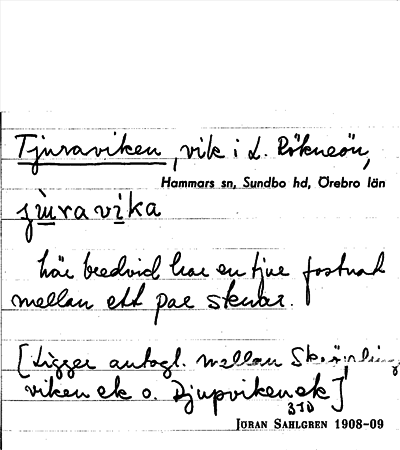 Tjuraviken, vik i L. Rökneön,
Hammars sn, Sundbo hd, Örebro län
jùravìka
här bredvid har en tjur fastnat
mellan ett par stenar.
[Ligger antagl. mellan
viken ek o. Djupviken ek]
3TD
JÖRAN SAHLGREN 1908-09